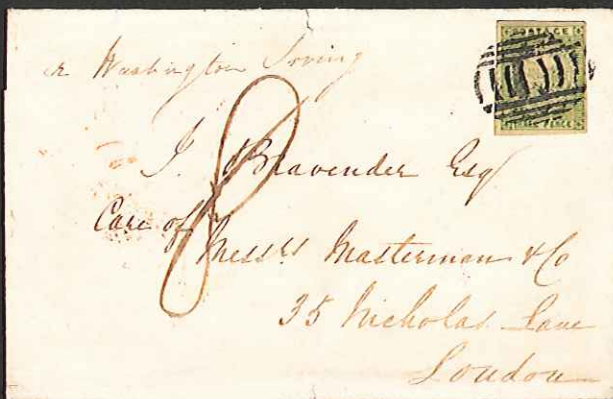 POSTAGE
THREE PENCE
Washington Irving
8
J. Bravender Esq
Care of Messrs Masterman & Co
35 Nicholas Lane
London